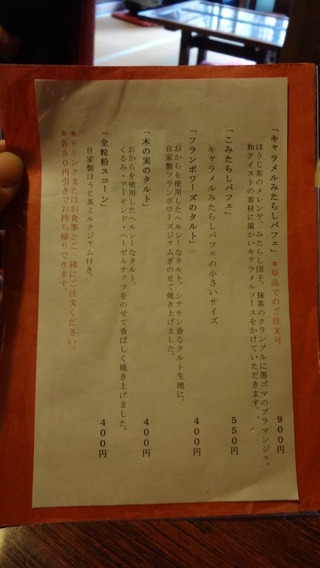 「キャラメルみたらしパフェ」＊単品でのご注文可 900円
ほうじ茶のメレンゲ、みたらし団子、抹茶のクランブルに黒ゴマのブラマンジェ。
和テイストの素材に温かいキャラメルソースをかけていただきます。
「こみたらしパフェ」 550円
キャラメルみたらしパフェの小さいサイズ
「フランボワーズのタルト」 400円
おからを使用したヘルシーなタルト。シナモン香るタルト生地に、
自家製フランボワーズジャムをのせて焼き上げました。
「木の実のタルト」 400円
おからを使用したヘルシーなタルト。
くるみ・アーモンド・ヘーゼルナッツをのせて香ばしく焼き上げました。
「全粒粉スコーン」 400円
自家製ほうじ茶ミルクジャム付き。
＊ドリンクまたはお食事とご一緒にご注文ください。
＊各50円引きでお持ち帰りできます。